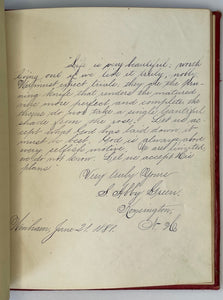 Life is very beautiful; worth
living out if we live it truly, nobly.
We must expect trials, they are the
knife that renders the matured
more perfect, and complete the
do not take a single
shade from the rose. Let us ac-
cept what God has laid down, it
must be best. God is always above
every selfish motive. We are limited
we do not know. Let us accept His
plans
Very truly Yours
S. Abby Green.
Kensington,
Hingham, June 21. 1881. N. H.